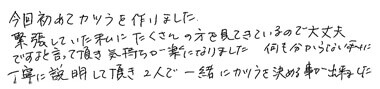 今回初めてカツラを作りました.
緊張していた私にたくさんの方を見てきているので大丈夫
ですよと言って頂き気持ちが楽になりました 何も分からない私に
丁寧に説明して頂き2人で一緒にカツラを決める事が出来ました